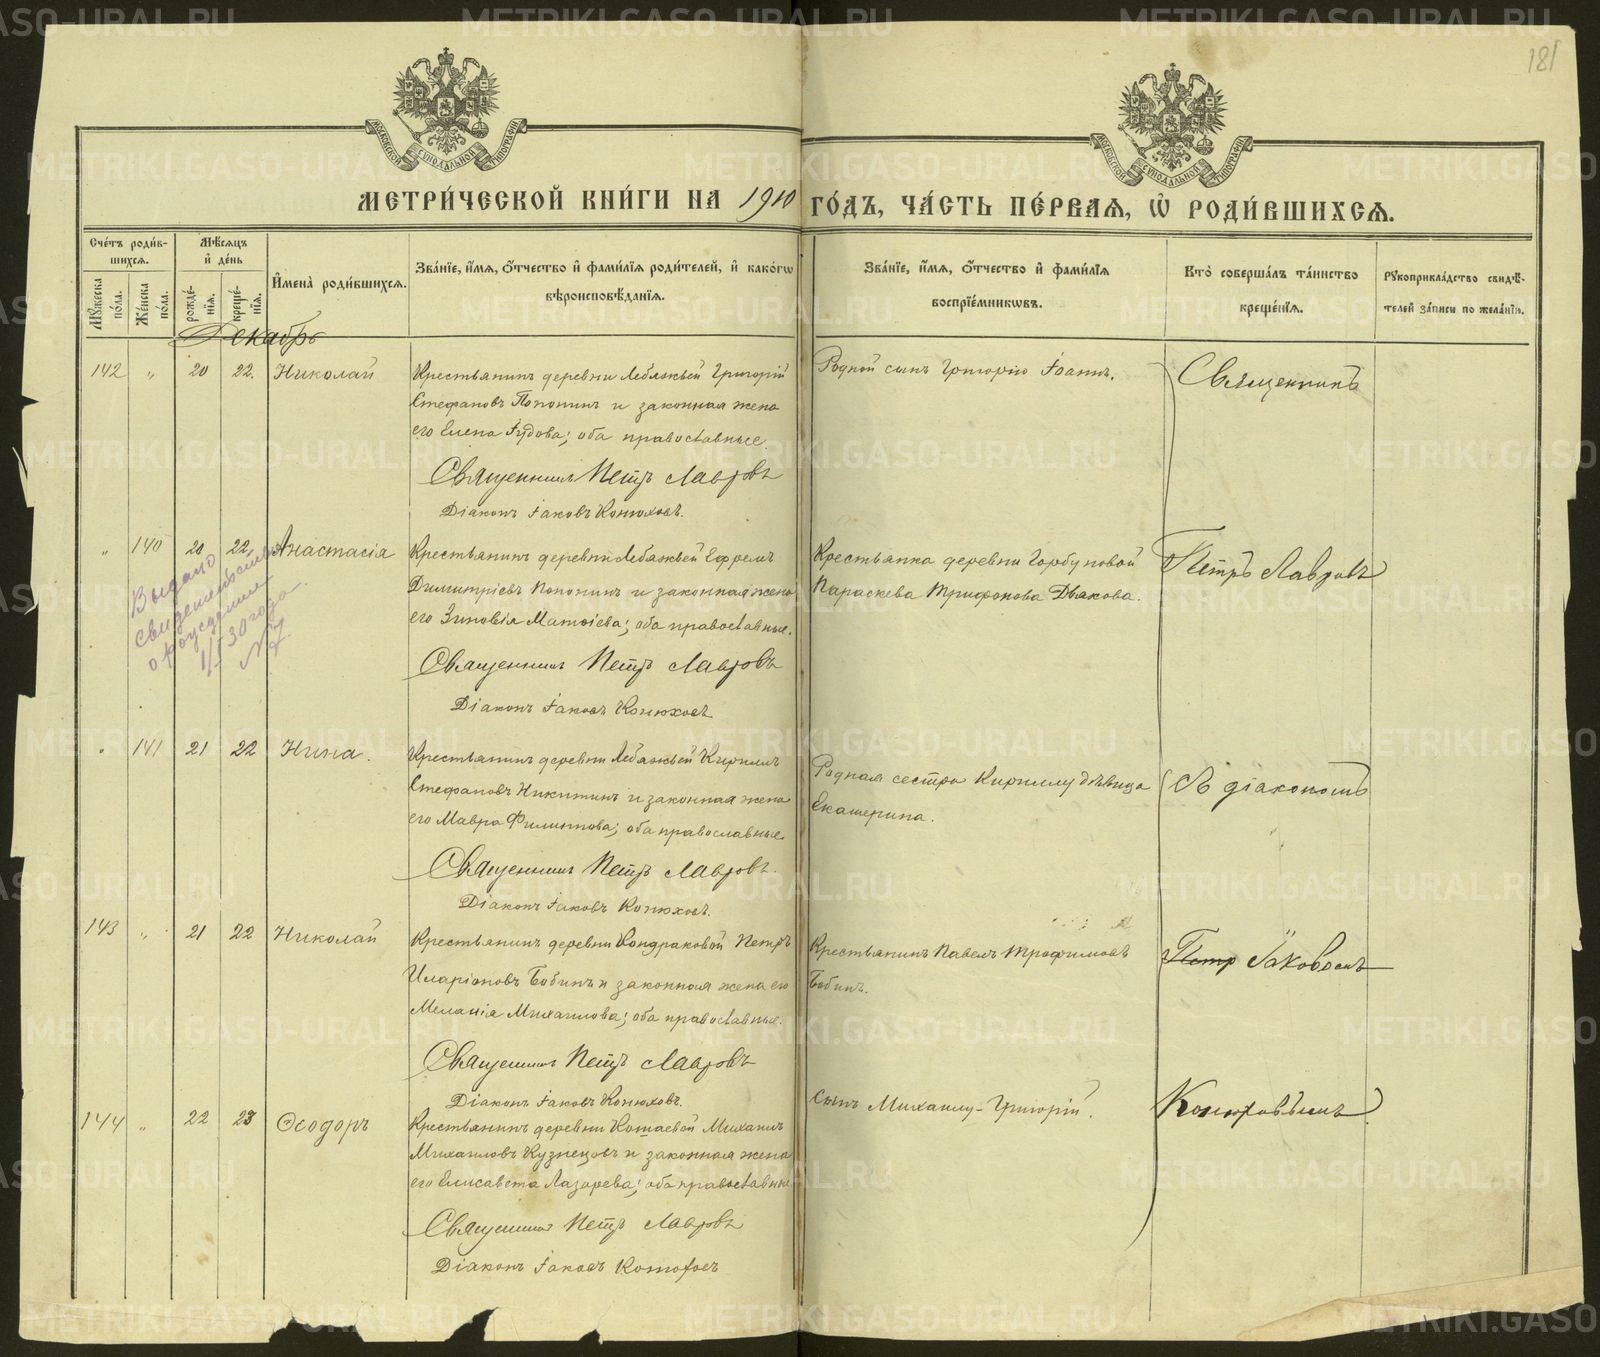 181
МОСКОВСКОЙ СУНОДАЛЬНОЙ ТИПОГРАФІИ
МОСКОВСКОЙ СУНОДАЛЬНОЙ ТИПОГРАФІИ
МЕТРИ́ЧЕСКОЙ КНИ́ГИ НА 1910 ГО́ДЪ, ЧА́СТЬ ПЕ́РВАЯ, Ѡ РОДИ́ВШИХСЯ.
Сче́тъ роди́вшихся.
Мꙋ́жеска по́ла.
Же́нска по́ла.
Мѣ́сяцъ и҆ де́нь
рожде́нїя.
креще́нїя.
И҆мена̀ роди́вшихся.
Зва́нїе, и҆́мя, ѻ҆́тчество и҆ фами́лїя роди́телей, и҆ како́гѡ
вѣроисповѣ́данїя.
Зва́нїе, и҆́мя, ѻ҆́тчество и҆ фами́лїя
воспрїе́мникѡвъ.
Кто̀ соверша́лъ та́инство
креще́нїя.
Рꙋкоприкла́дство свидѣ́-
телей за́писи по жела́нїи.
Декабрь
142 " 20 22. Николай
Крестьянинъ деревни Лебяжьей Григорій
Стефановъ Попонинъ и законная жена
его Елена; оба православные
Священникъ Петръ Лавровъ
Діаконъ Іаковъ Конюховъ.
Родной сынъ Григорію Іоаннъ.
Священникъ
" 140 20 22 Анастасія
Крестьянинъ деревни Лебяжьей Ефремъ
Димитріевъ Попонинъ и законная жена
его Зиновія Матѳіева; оба православные.
Священникъ Петръ Лавровъ
Діаконъ Іаковъ Конюховъ
Крестьянка деревни Горбуновой
Параскева Трифонова Дьякова.
Петръ Лавровъ
Выдано
свидетельство
о рождении
30 года
№
" 141 21 22 Нина.
Крестьянинъ деревни Лебяжьей Кириллъ
Стефановъ Никитинъ и законная жена
его Мавра Филиппова; оба православные
Священникъ Петръ Лавровъ.
Діаконъ Іаковъ Конюховъ.
Родная сестра Кириллу дѣвица
Екатерина.
Съ діакономъ
143 " 21 22 Николай
Крестьянинъ деревни Кондраковой Петръ
Иларіоновъ Бобинъ и законная жена его
Меланія Михаилова; оба православные.
Священникъ Петръ Лавровъ
Діаконъ Іаковъ Конюховъ.
Крестьянинъ Павелъ Трофимовъ
Бобинъ.
Петр Іаковомъ
144 " 22 23 Ѳеодоръ
Крестьянинъ деревни Кошаевой Михаилъ
Михаиловъ Кузнецовъ и законная жена
его Елисавета Лазарева; оба православные
Священникъ Петръ Лавровъ
Діаконъ Іаковъ Конюховъ
Сынъ Михаилу - Григорій.
Конюховымъ.
METRIKI.GASO-URAL.RU